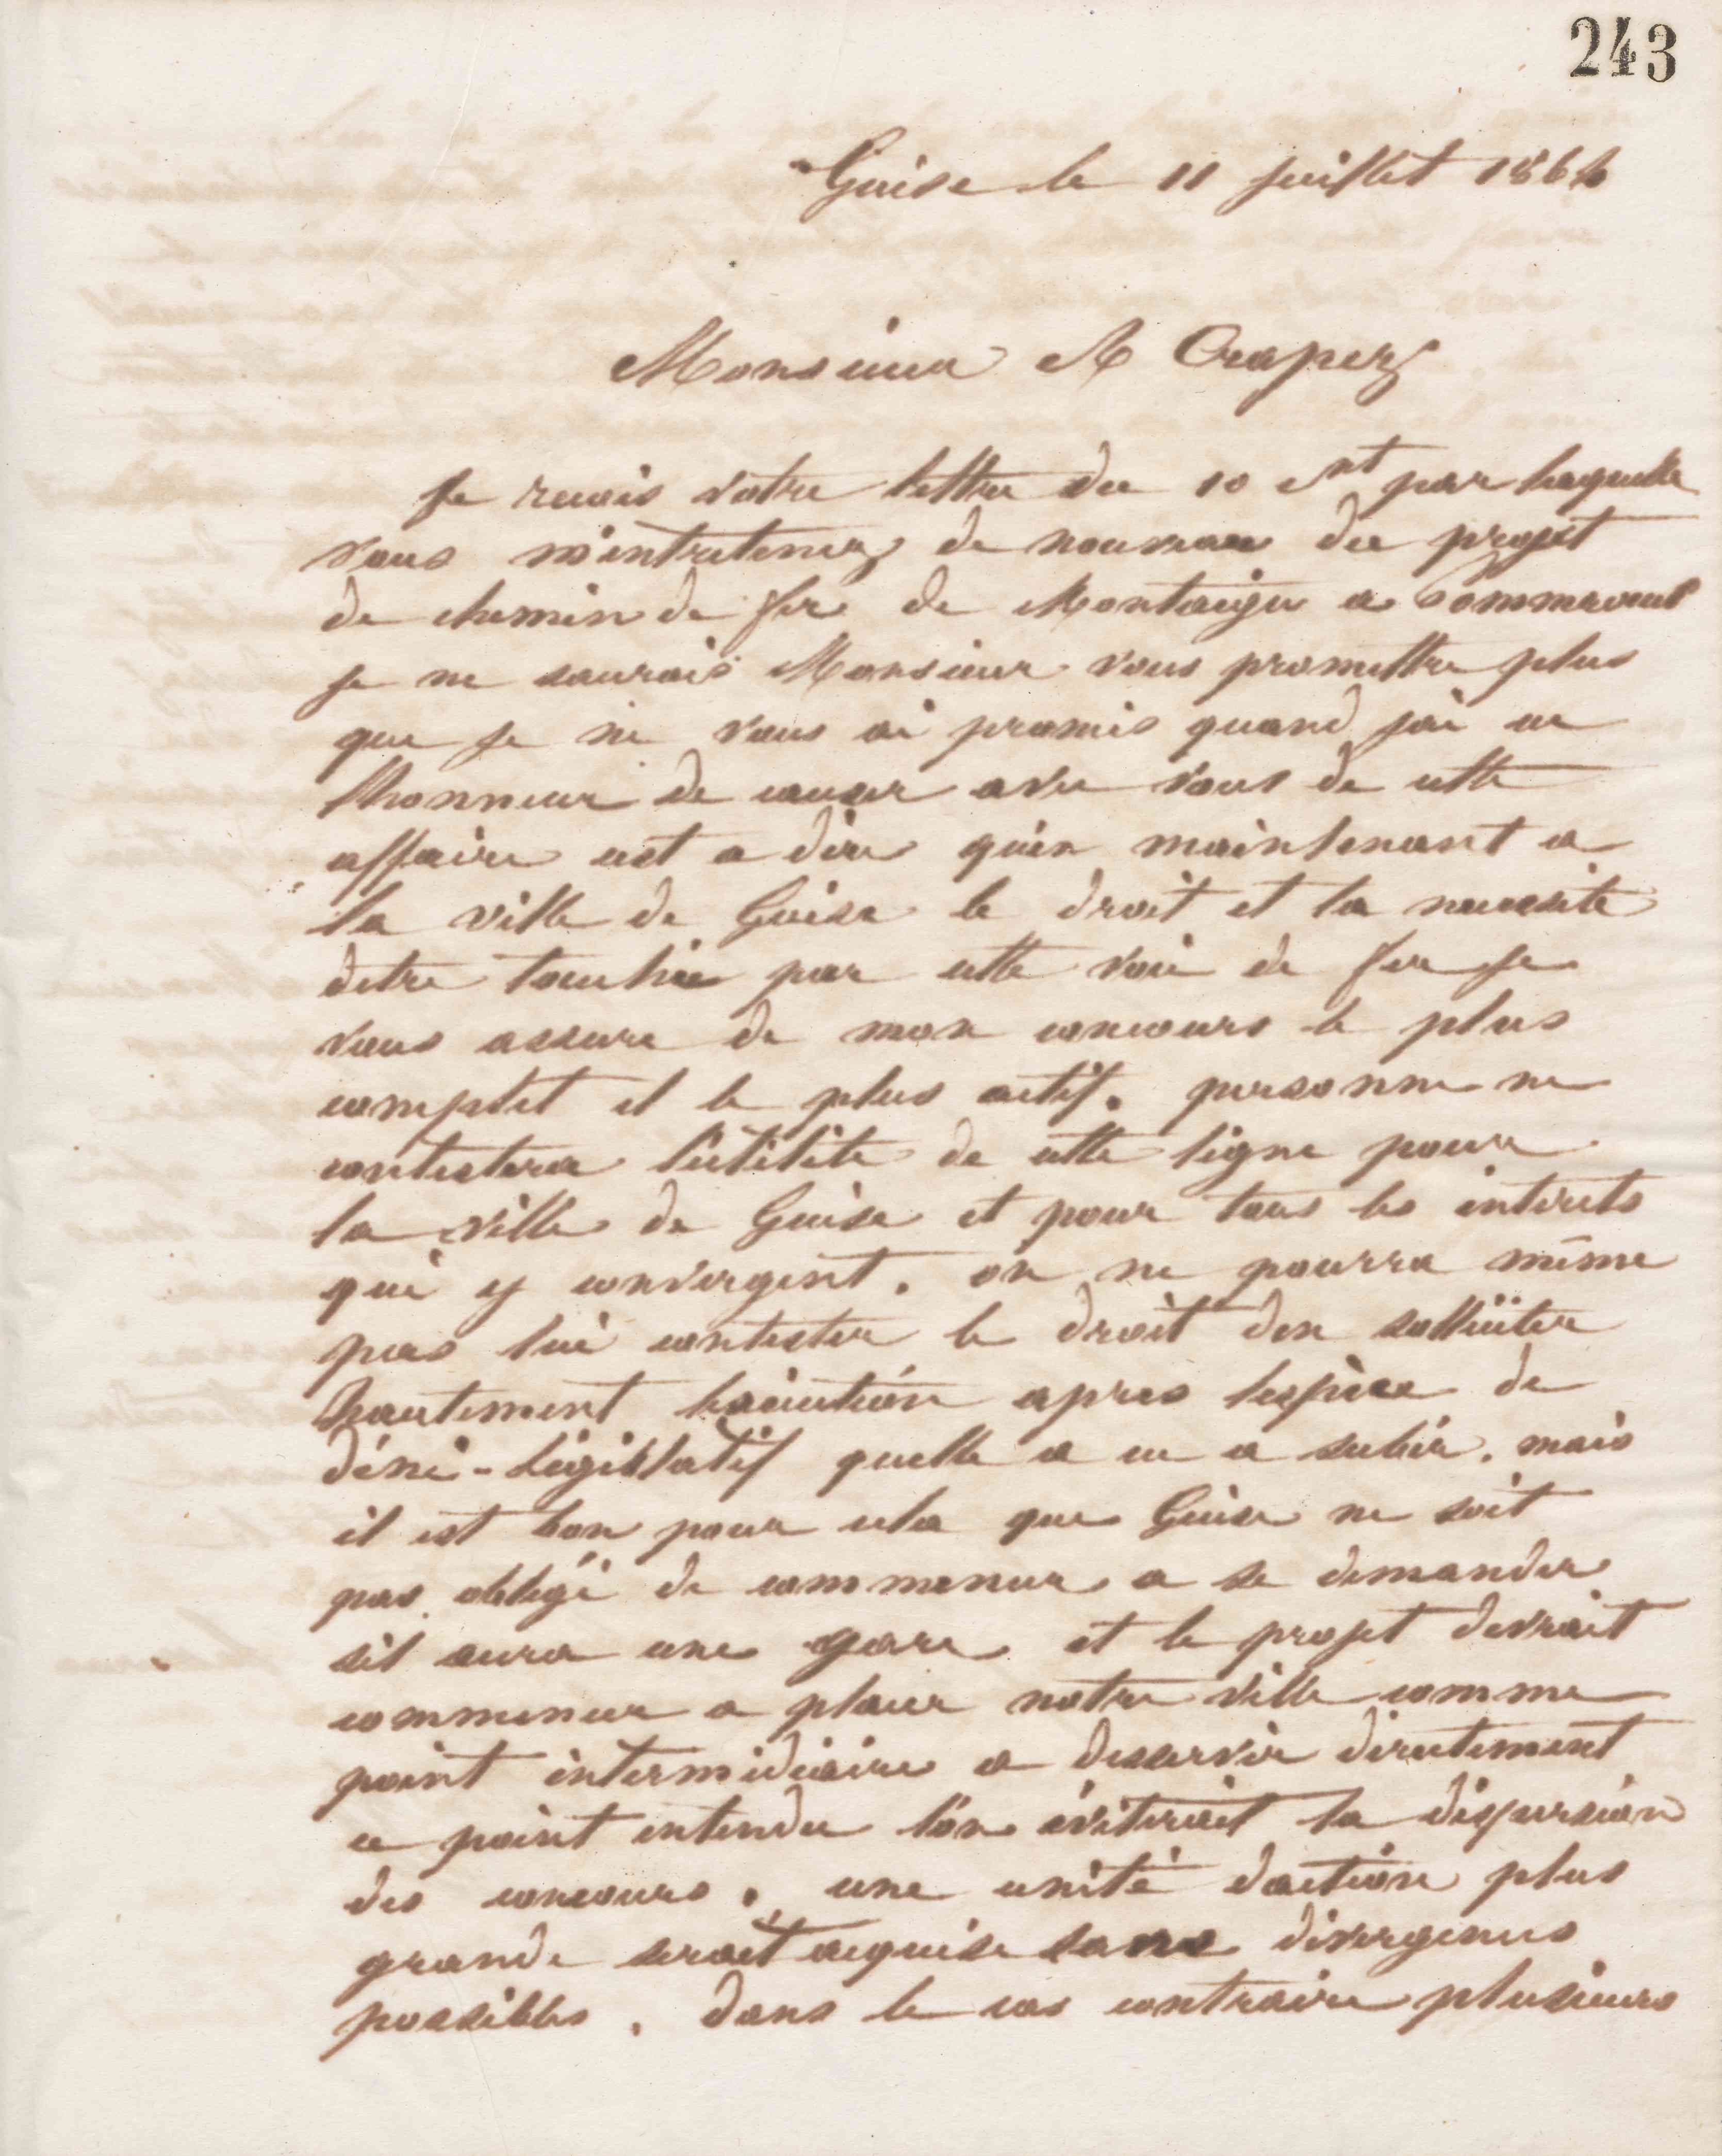 243
Guise le 11 juillet 1864
Monsieur A Crapez
Je recois votre lettre du 10 ct par laquelle
vous m'entretenez de nouveau du projet
de chemin de fer de Montaigu a Sommevent
je ne saurais Monsieur vous promettre plus
que je ne vous ai promis quand j'ai eu
lhonneur de causer avec vous de cette
affaire cest a dire qu'en maintenant a
la ville de Guise le droit et la necessite
detre touchée par cette voie de fer je
vous assure de mon concours le plus
complet et le plus actif. personne ne
contestera l'utilite de cette ligne pour
la ville de Guise et pour tous les interets
qui y convergent. on ne pourra même
pas lui contester le droit den solliciter
hautement lexécution apres lespèce de
déni-législatif quelle a eu a subir. mais
il est bon pour cela que Guise ne soit
pas obligé de commencer a se demander
sil aura une gare et le projet devrait
commencer a placer notre ville comme
point intermédiaire a desservir directement
ce point entendu l'on éviterait la dispersion
des concours. une unité daction plus
grande serait acquise sans divergences
possibles. dans le cas contraire plusieurs